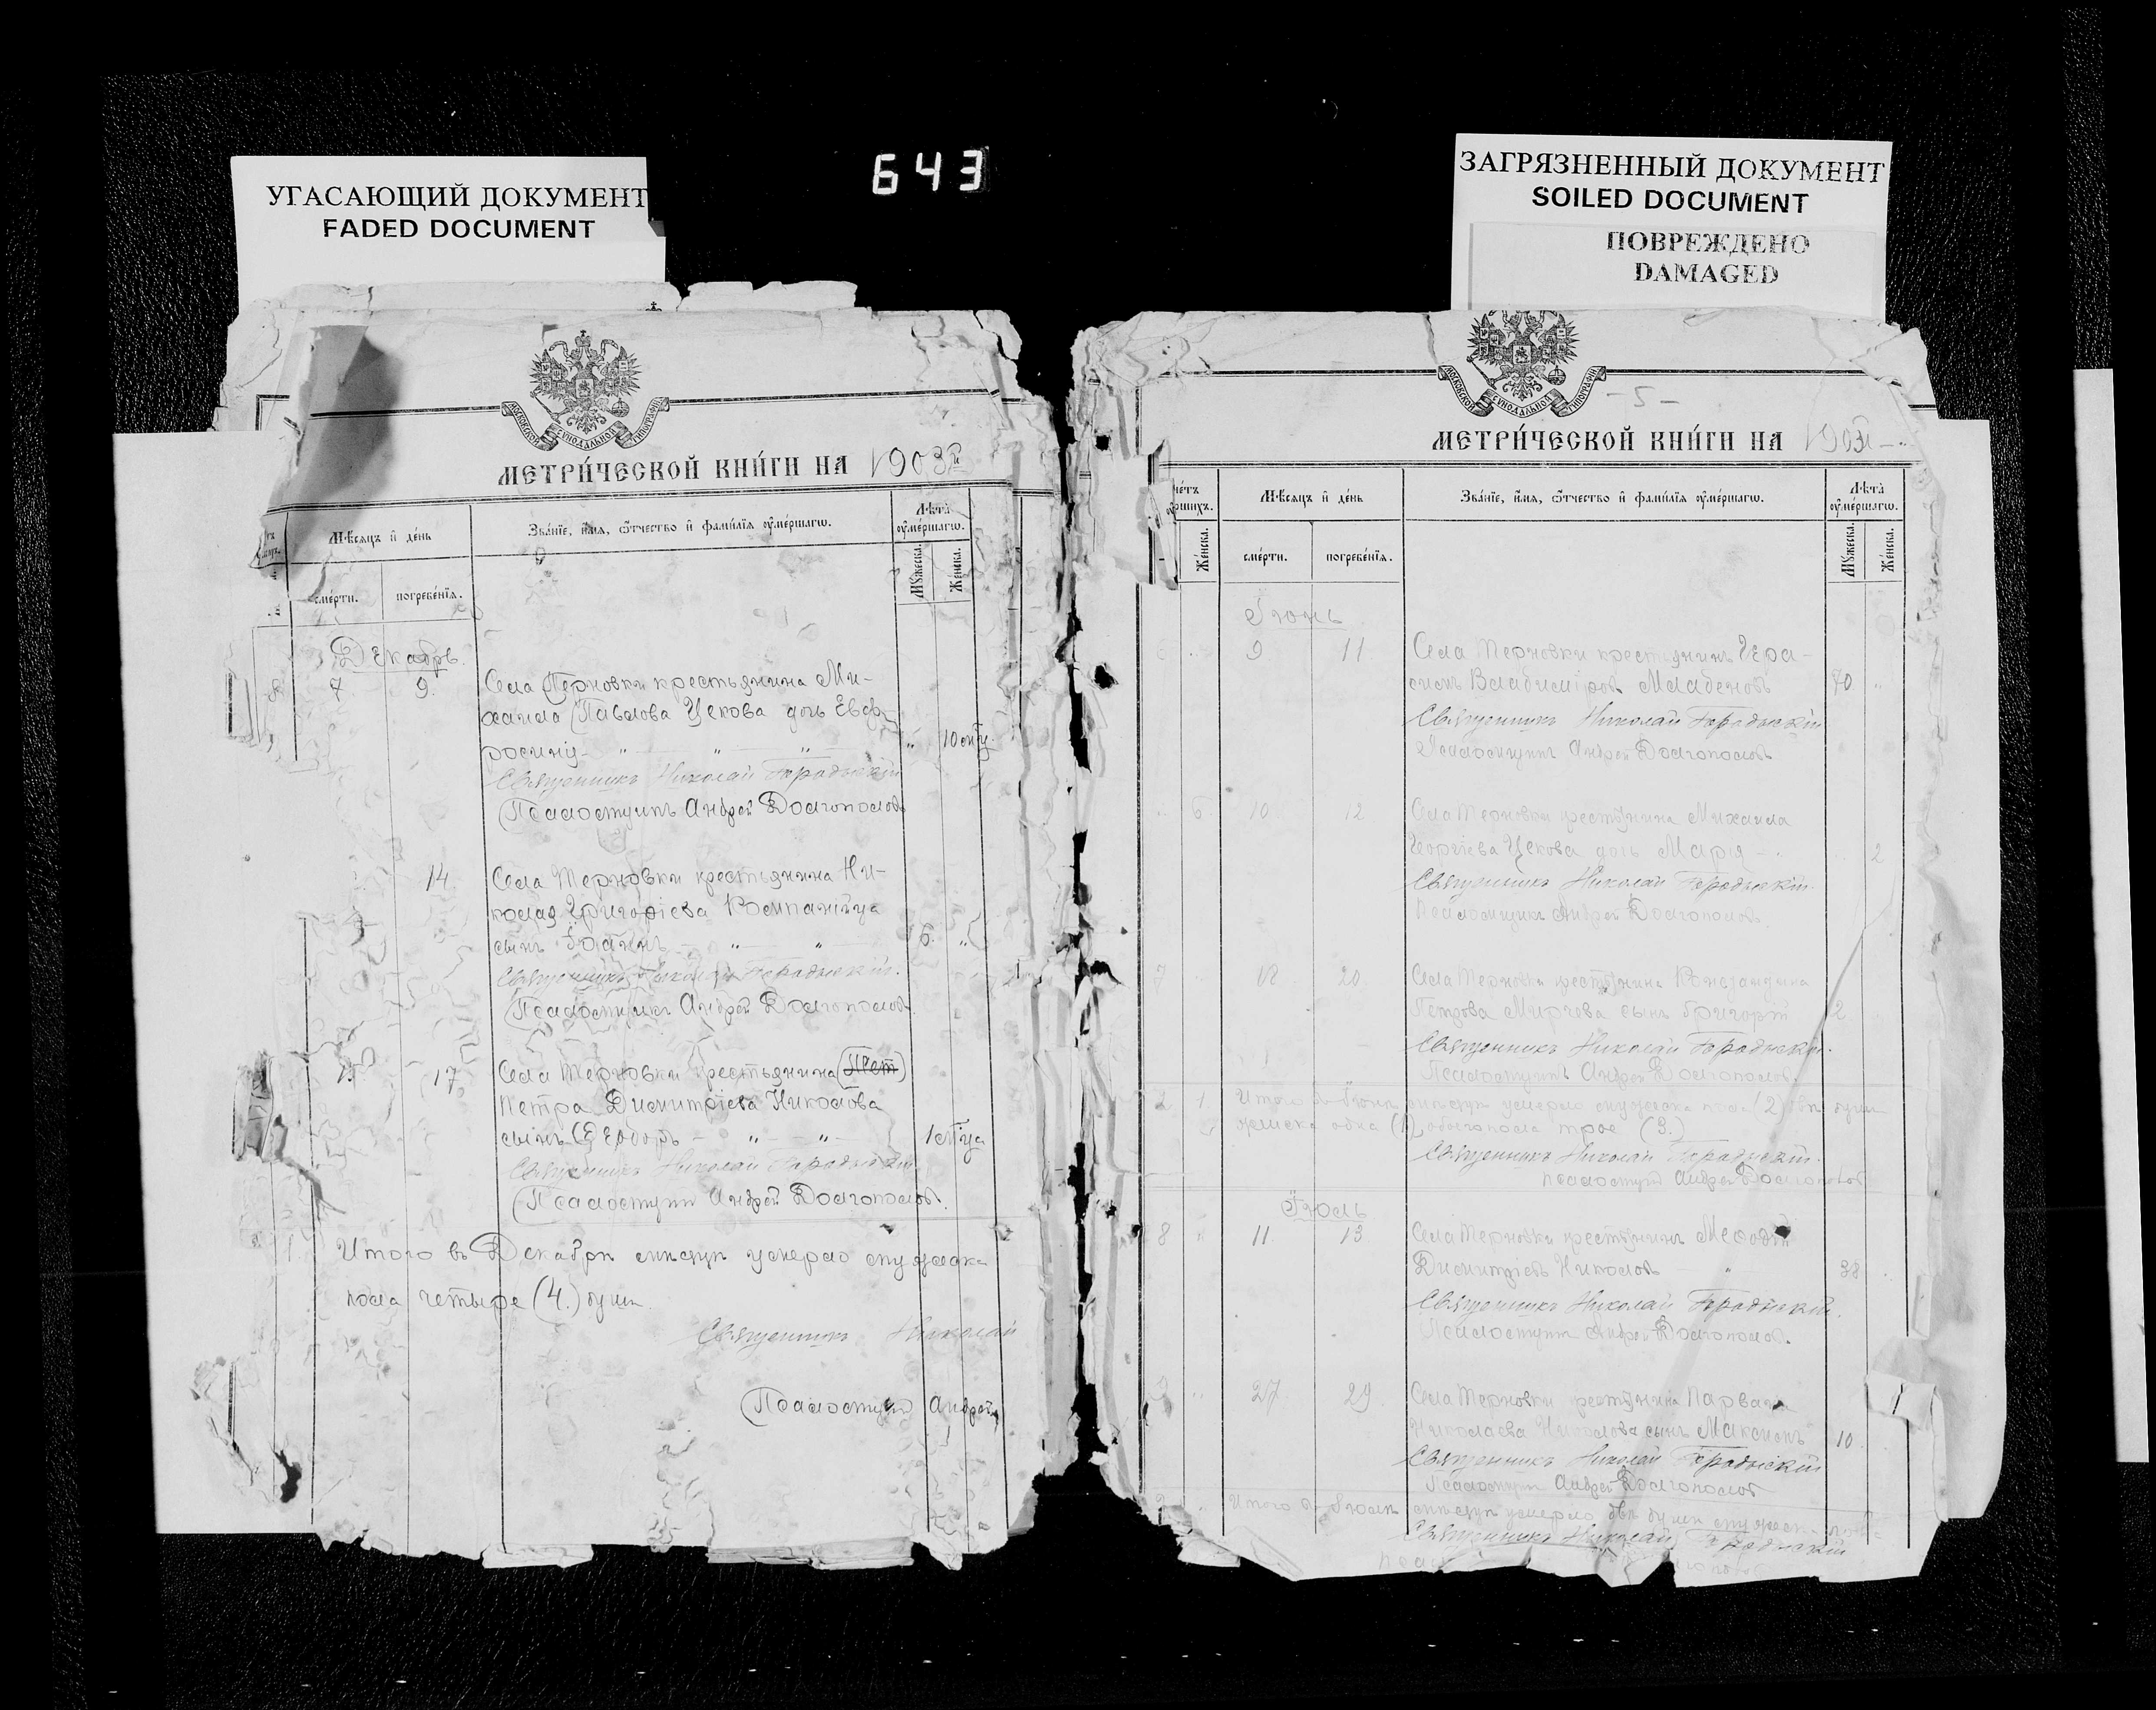 УГАСАЮЩИЙ ДОКУМЕНТ
FADED DOCUMENT
643
ЗАГРЯЗНЕННЫЙ ДОКУМЕНТ
SOILED DOCUMENT
ПОВРЕЖДЕНО
DAMAGED
МОСКОВСКОЙ СѴНОДАЛЬНОЙ ТИПОГРАФІИ
МЕТРИ́ЧЕСКОЙ КНИ́ГИ НА 1903й
Мѣ́сяцъ и҆ де́нь
Зва́нїе, и҆́мя, ѻ҆́тчество и҆ фами́лїя ᲂу҆ме́ршагѡ.
Лѣ́та ᲂу҆ме́ршагѡ.
сме́рти.
погребе́нїя.
Мꙋ́жеска.
Же́нска.
Декабрь.
8 7 9. Села Терновки крестьянина Ми-
хаила Павлова Цекова дочь Евф-
росинія " " " " 10 мѣц.
Священникъ Николай Городыскій
Псаломщикъ Андрей Долгополовъ
14 Села Терновки крестьянина Ни-
колая Григоріева
сынъ Іоаннъ " " 6. "
Священникъ Николай Городыскій.
Псаломщикъ Андрей Долгополовъ.
17 Села Терновки крестьянина (Пет)
Петра Димитріева Николова
сынъ Ѳеодоръ - " - " - 1 мѣца
Священникъ Николай Городыскій
Псаломщикъ Андрей Долгополовъ.
Итого въ Декабрѣ мѣсяцѣ умерло мужеска
пола четыре (4.) души.
Священникъ Николай
Псаломщикъ Андрей
МОСКОВСКОЙ СѴНОДАЛЬНОЙ ТИПОГРАФІИ
- 5 -
МЕТРИ́ЧЕСКОЙ КНИ́ГИ НА 1903й
Же́нска.
Мѣ́сяцъ и҆ де́нь
Зва́нїе, и҆́мя, ѻ҆́тчество и҆ фами́лїя ᲂу҆ме́ршагѡ.
Лѣ́та ᲂу҆ме́ршагѡ.
сме́рти.
погребе́нїя.
Мꙋ́жеска.
Же́нска.
Іюнь
6 " 9 11 Села Терновки крестьянинъ Гера-
симъ Владиміровъ Младеновъ 70. "
Священникъ Николай Городыскій
Псаломщикъ Андрей Долгополовъ
" 6 10 12 Села Терновки крестьянина Михаила
Георгіева Цекова дочь Марія - " 2
Священникъ Николай Городыскій.
Псаломщикъ Андрей Долгополовъ
7 " 18 20 Села Терновки крестьянина Константина
Петрова Мирчева сынъ Григорій 2.
Священникъ Николай Городыскій.
Псаломщикъ Андрей Долгополовъ.
2 1 Итого въ Іюнѣ мѣсяцѣ умерло мужеска пола (2) двѣ души
женска одна (1), обоего пола трое (3.)
Священникъ Николай Городыскій.
Псаломщикъ Андрей Долгополовъ
Іюль
8 " 11 13 Села Терновки крестьянинъ Меѳодій
Димитріевъ Николовъ " 38
Священникъ Николай Городыскій.
Псаломщикъ Андрей Долгополовъ.
9 " 27 29. Села Терновки крестьянина Парвана
Николаева Николова сынъ Максимъ 10
Священникъ Николай Городыскій
Псаломщикъ Андрей Долгополовъ
2 " Итого въ Іюлѣ мѣсяцѣ умерло двѣ души мужеск. пола
Священникъ Николай Городыскій